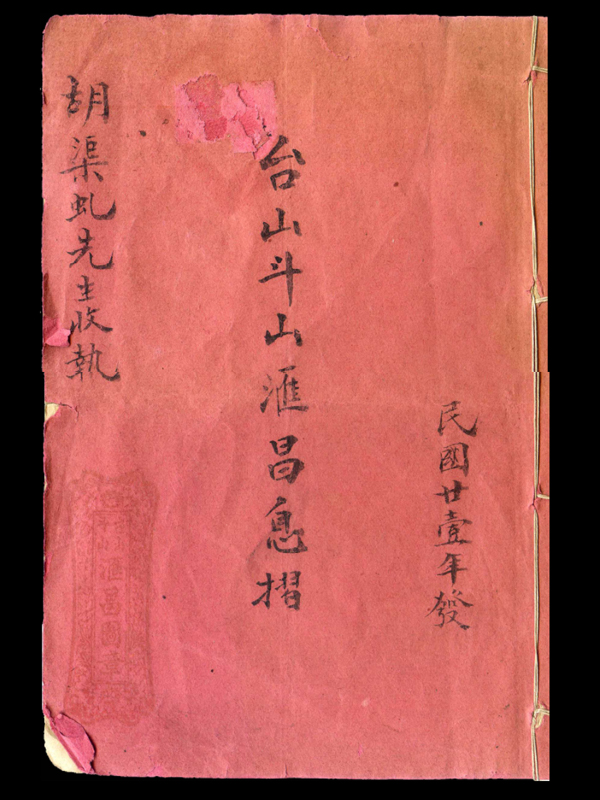 民國廿壹年發
台山斗山滙昌息摺
胡渠虬先生收執
滙昌